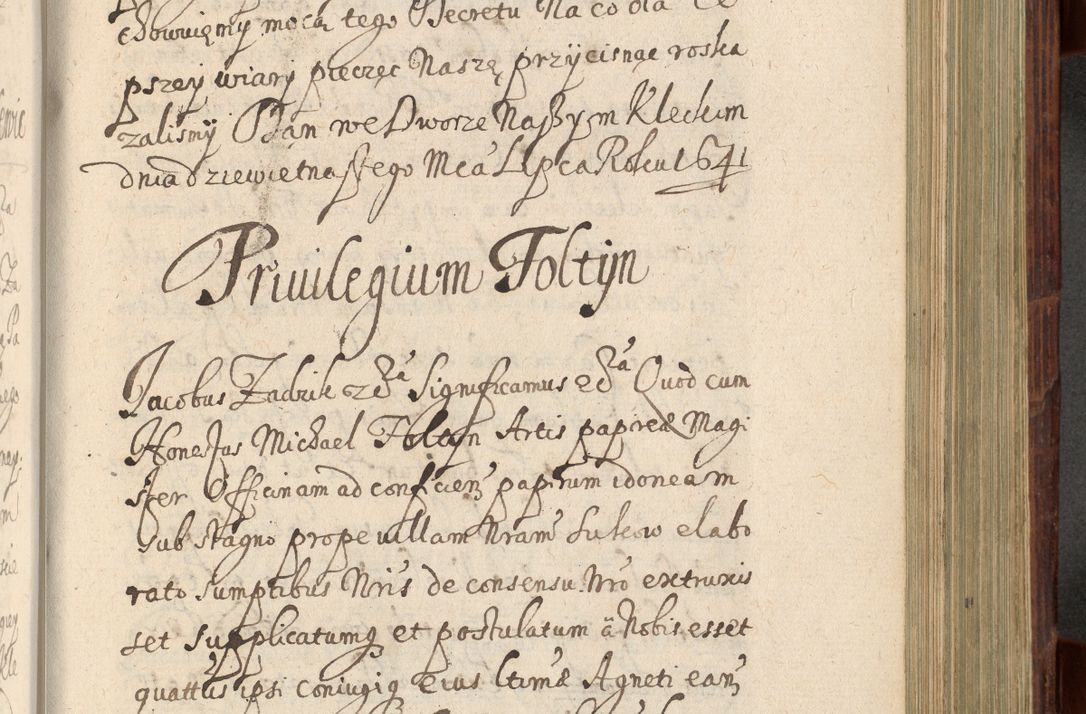 pszey wiary pieczęc Naszę przycisnąc roska
zalismy Dan we Dworze Naszym Kleckim
dnia dziewietnastego Mca Lipca Roku 1641
Privilegium Foltyn
Jacobus Zadzik &c Significamus Quod cum
Honestus Michael Foltyn Artis papireæ Magi
ster Officinam ad conficien papirum idoneam
sub stagno prope villam Nram Sukow elabo
rato sumptibus Nris de consensu Nro extruxis
set supplicatumq et postulatum â Nobis esset
quattus ipsi coniugiq eius ltimæ Agneti eam